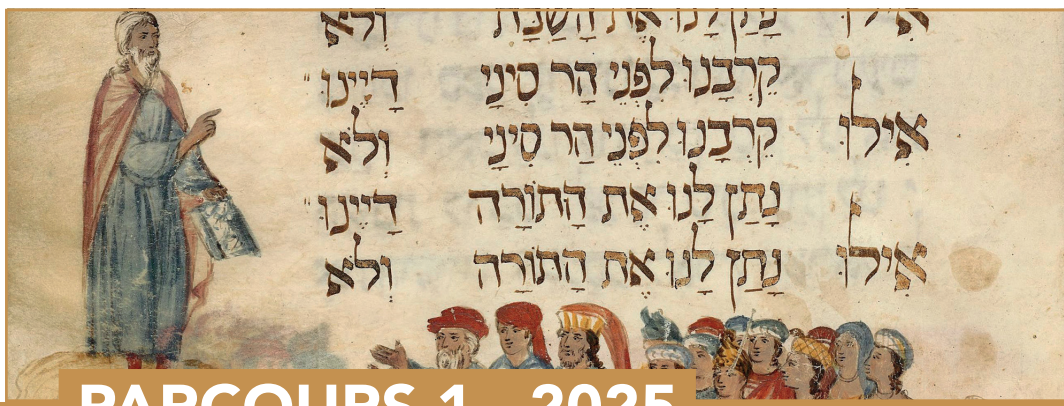 אִילוּ נָתַן לָנוּ אֶת הַשַׁבָּת וְלֹא
קֵרְבָנוּ לִפְנֵי הַר סִינַי דַיֵינוּ
אִילוּ קֵרְבָנוּ לִפְנֵי הַר סִינַי וְלֹא
נָתַן לָנוּ אֶת הַתּוֹרָה דַיֵינוּ
אִילוּ נָתַן לָנוּ אֶת הַתּוֹרָה וְלֹא
PARCOURS 1 - 2025